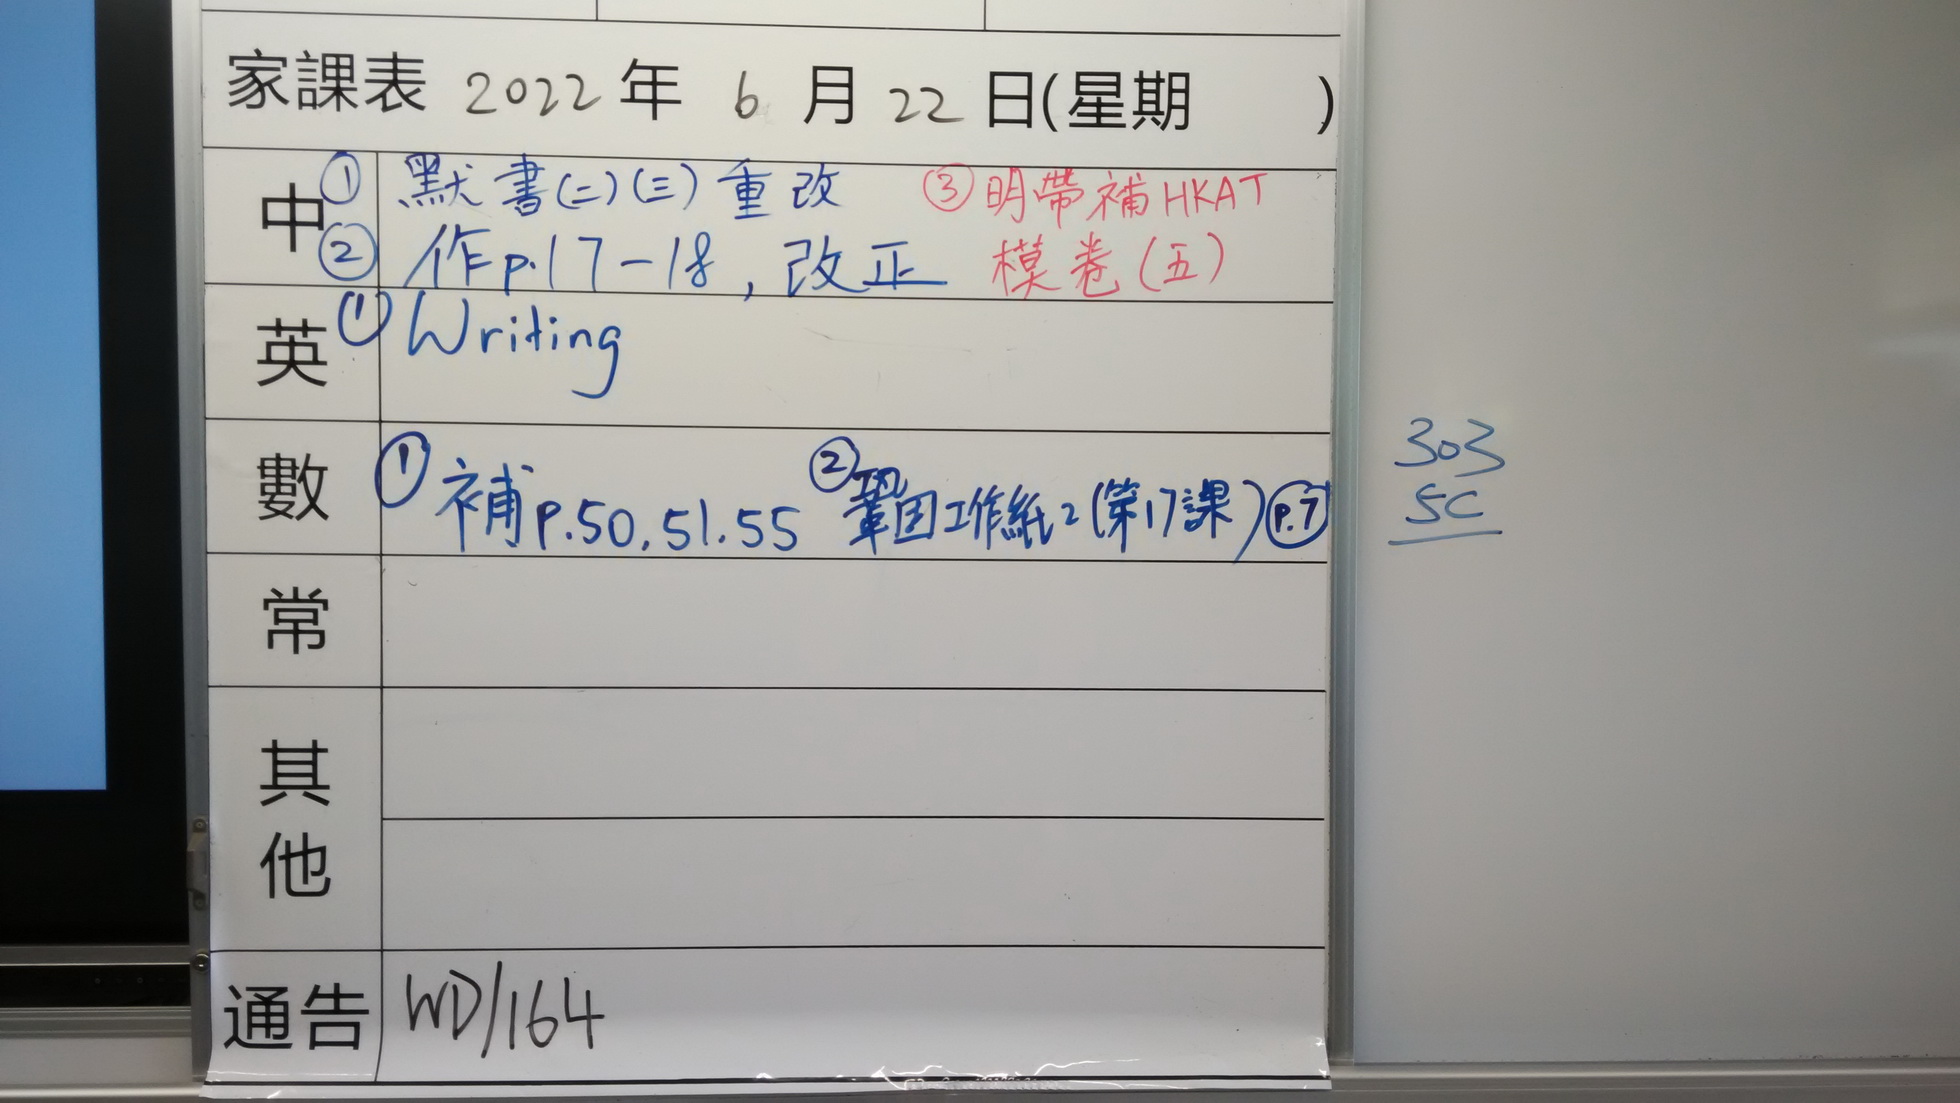 家課表 2022 年 6 月 22 日(星期 )
中 ① 默書(二)(三)重改 ③明帶補HKAT
② 作p.17-18,改正 模卷(五)
英 ① Writing
數 ① 補p.50,51.55 ② 鞏固工作紙2(第17課) p.7
303
5C
常
其
他
通告 WD/164